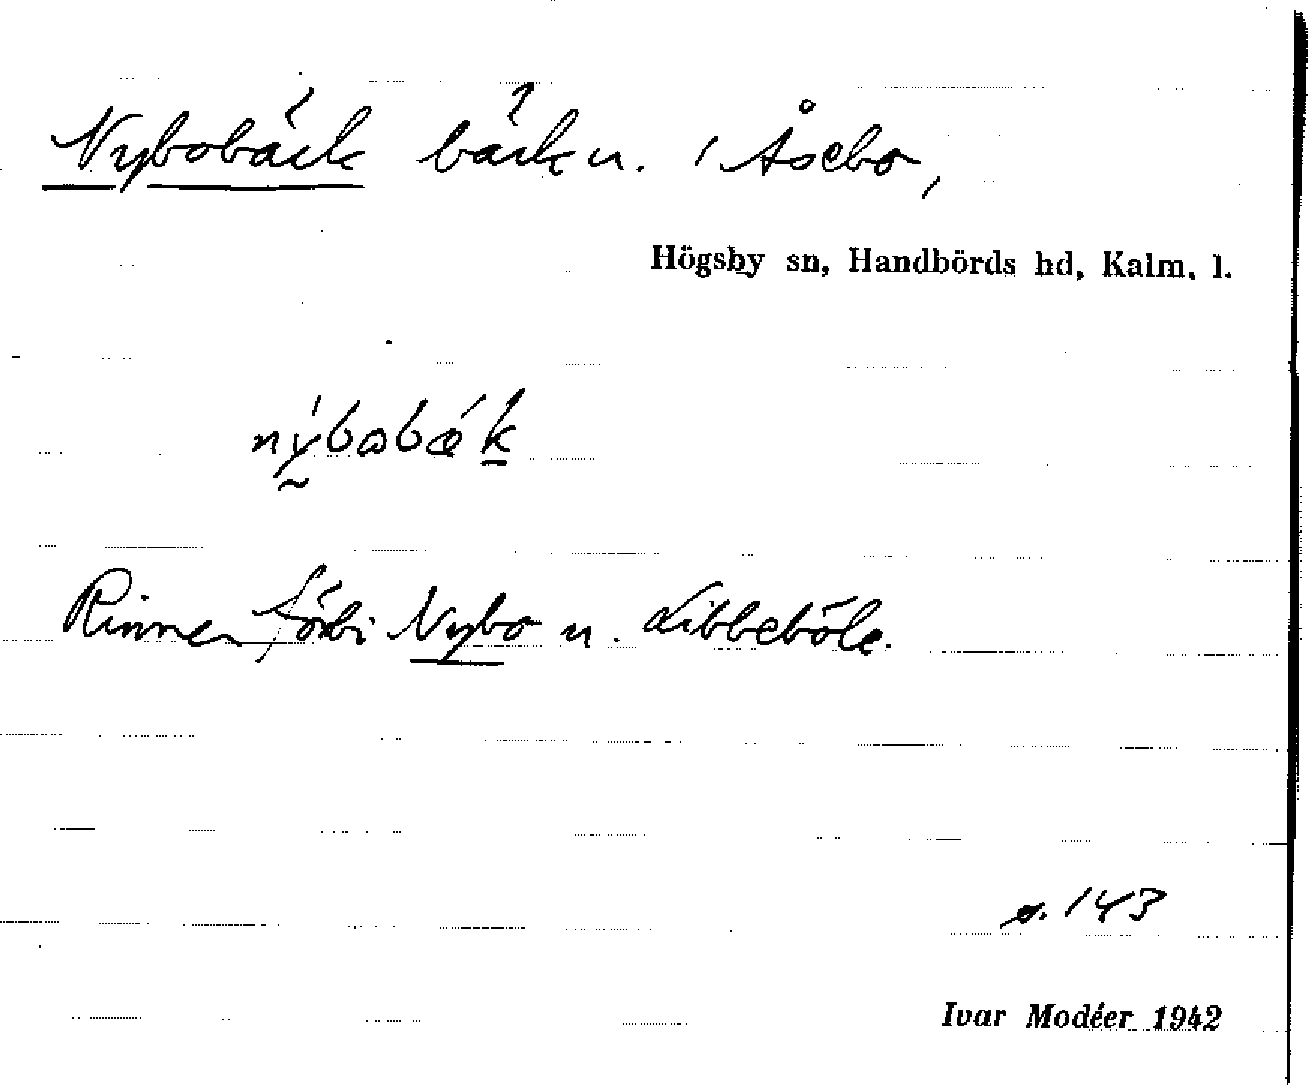 Nybobäck bäck n. i Åsebo,
Högsby sn, Handbörds hd, Kalm. l.
nýbobæ´k
Rinner förbi Nybo n. Libbeböle.
s. 143
Ivar Modéer 1942